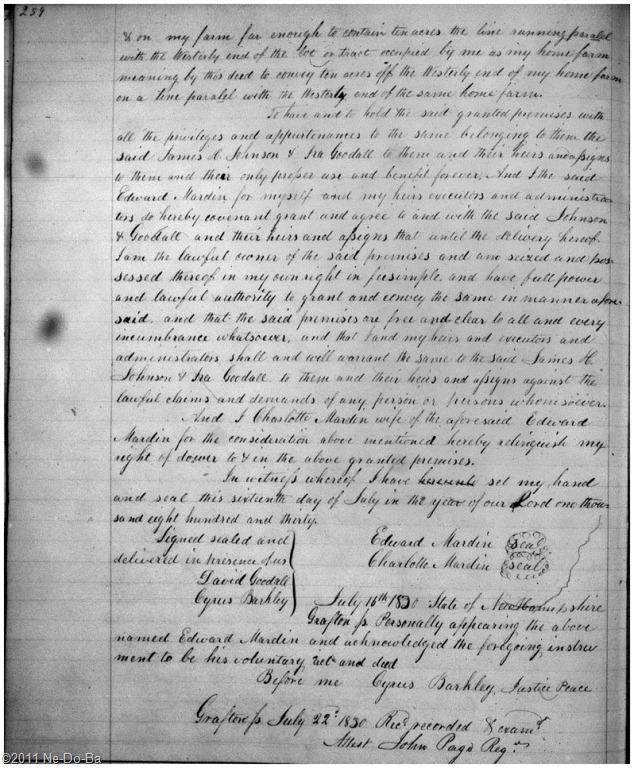 259
& on my farm far enough to contain ten acres the line running paralel
with the Westerly end of the lot or tract occupied by me as my home farm
meaning by this deed to convey ten acres off the Westerly end of my home farm
on a line paralel with the Westerly end of the same home farm.
To have and to hold the said granted premises with
all the privileges and appurtenances to the same belonging to them the
said James H. Johnson & Ira Goodall to them and their heirs and assigns
to them and their only proper use and benefit forever And I the said
Edward Mardin for myself and my heirs executors and administra
tors do hereby covenant grant and agree to and with the said Johnson
& Goodall and their heirs and assigns that until the delivery hereof
I am the lawful owner of the said premises and am seized and pos
sessed thereof in my own right in feesimple and have full power
and lawful authority to grant and convey the same in manner afore
said. and that the said premises are free and clear to all and every
incumbrance whatsoever, and that I and my heirs and executors and
administrators shall and will warrant the same to the said James H
Johnson & Ira Goodall to them and their heirs and assigns against the
lawful claims and demands of any person or persons whomsoever.
And I Charlotte Mardin wife of the aforesaid Edward
Mardin for the consideration above mentioned hereby relinquish my
right of dower to & in the above granted premises.
In witness whereof I have hereunto set my hand
and seal this sixteenth day of July in the year of our Lord one thou
sand eight hundred and thirty.
Signed sealed and Edward Mardin seal
delivered in presence of us Charlotte Mardin seal
David Goodall
Cyrus Barkley July 16th 1830 State of New Hampshire
Grafton ss Personally appearing the above
named Edward Mardin and acknowledged the foregoing instru
ment to be his voluntary act and deed
Before me Cyrus Barkley, Justice Peace
Grafton ss July 22d 1830 Recd recorded & examd
Attest John Page Regr
©2011 Ne-Do-Ba